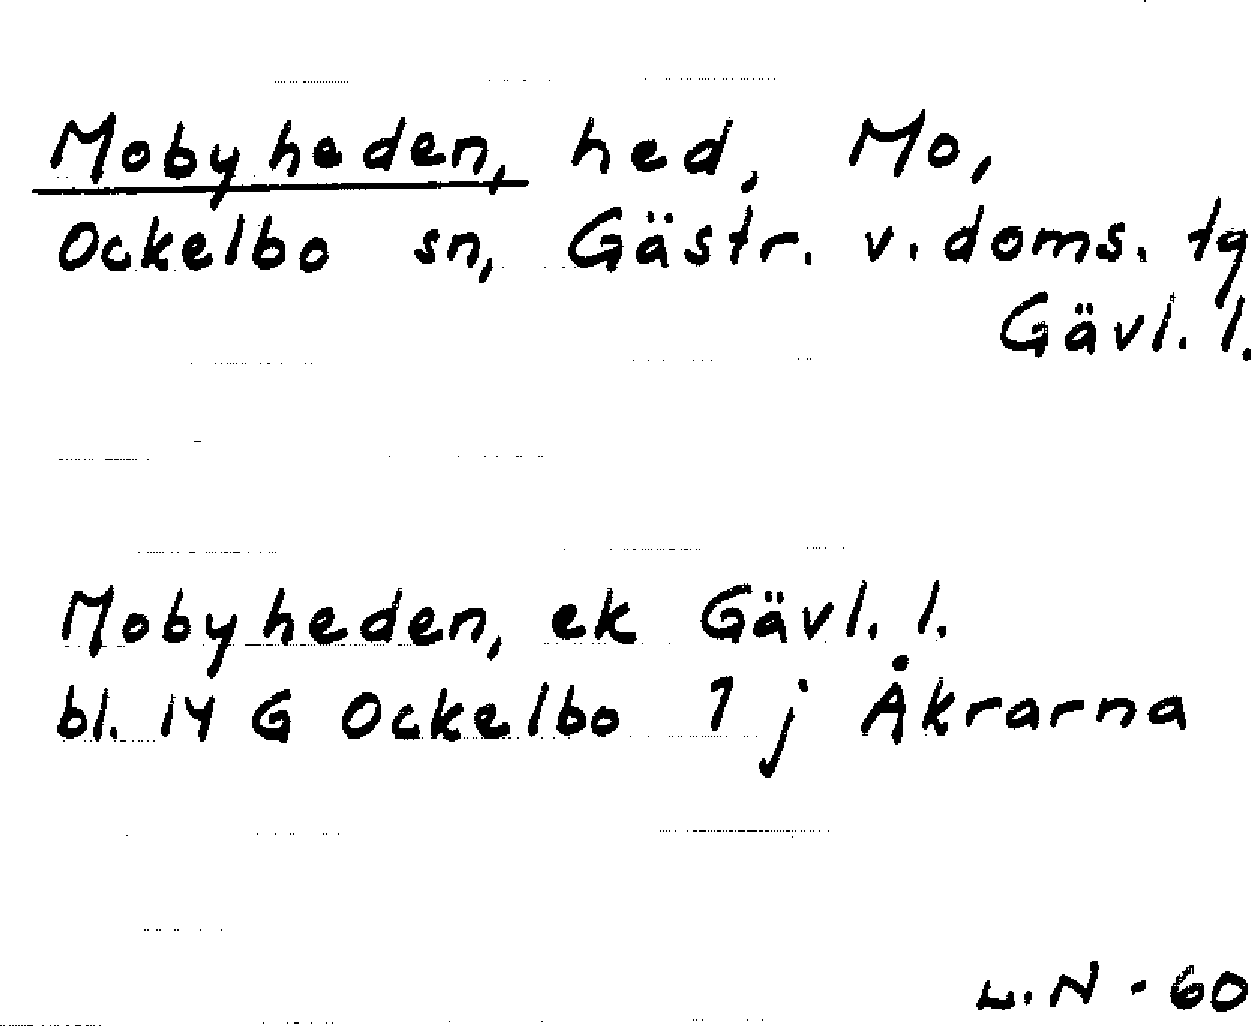 Mobyheden, hed, Mo,
Ockelbo sn, Gästr. v. doms. tg
Gävl. l.
Mobyheden, ek Gävl. l.
bl. 14 G Ockelbo 1 j Åkrarna
L.N - 60